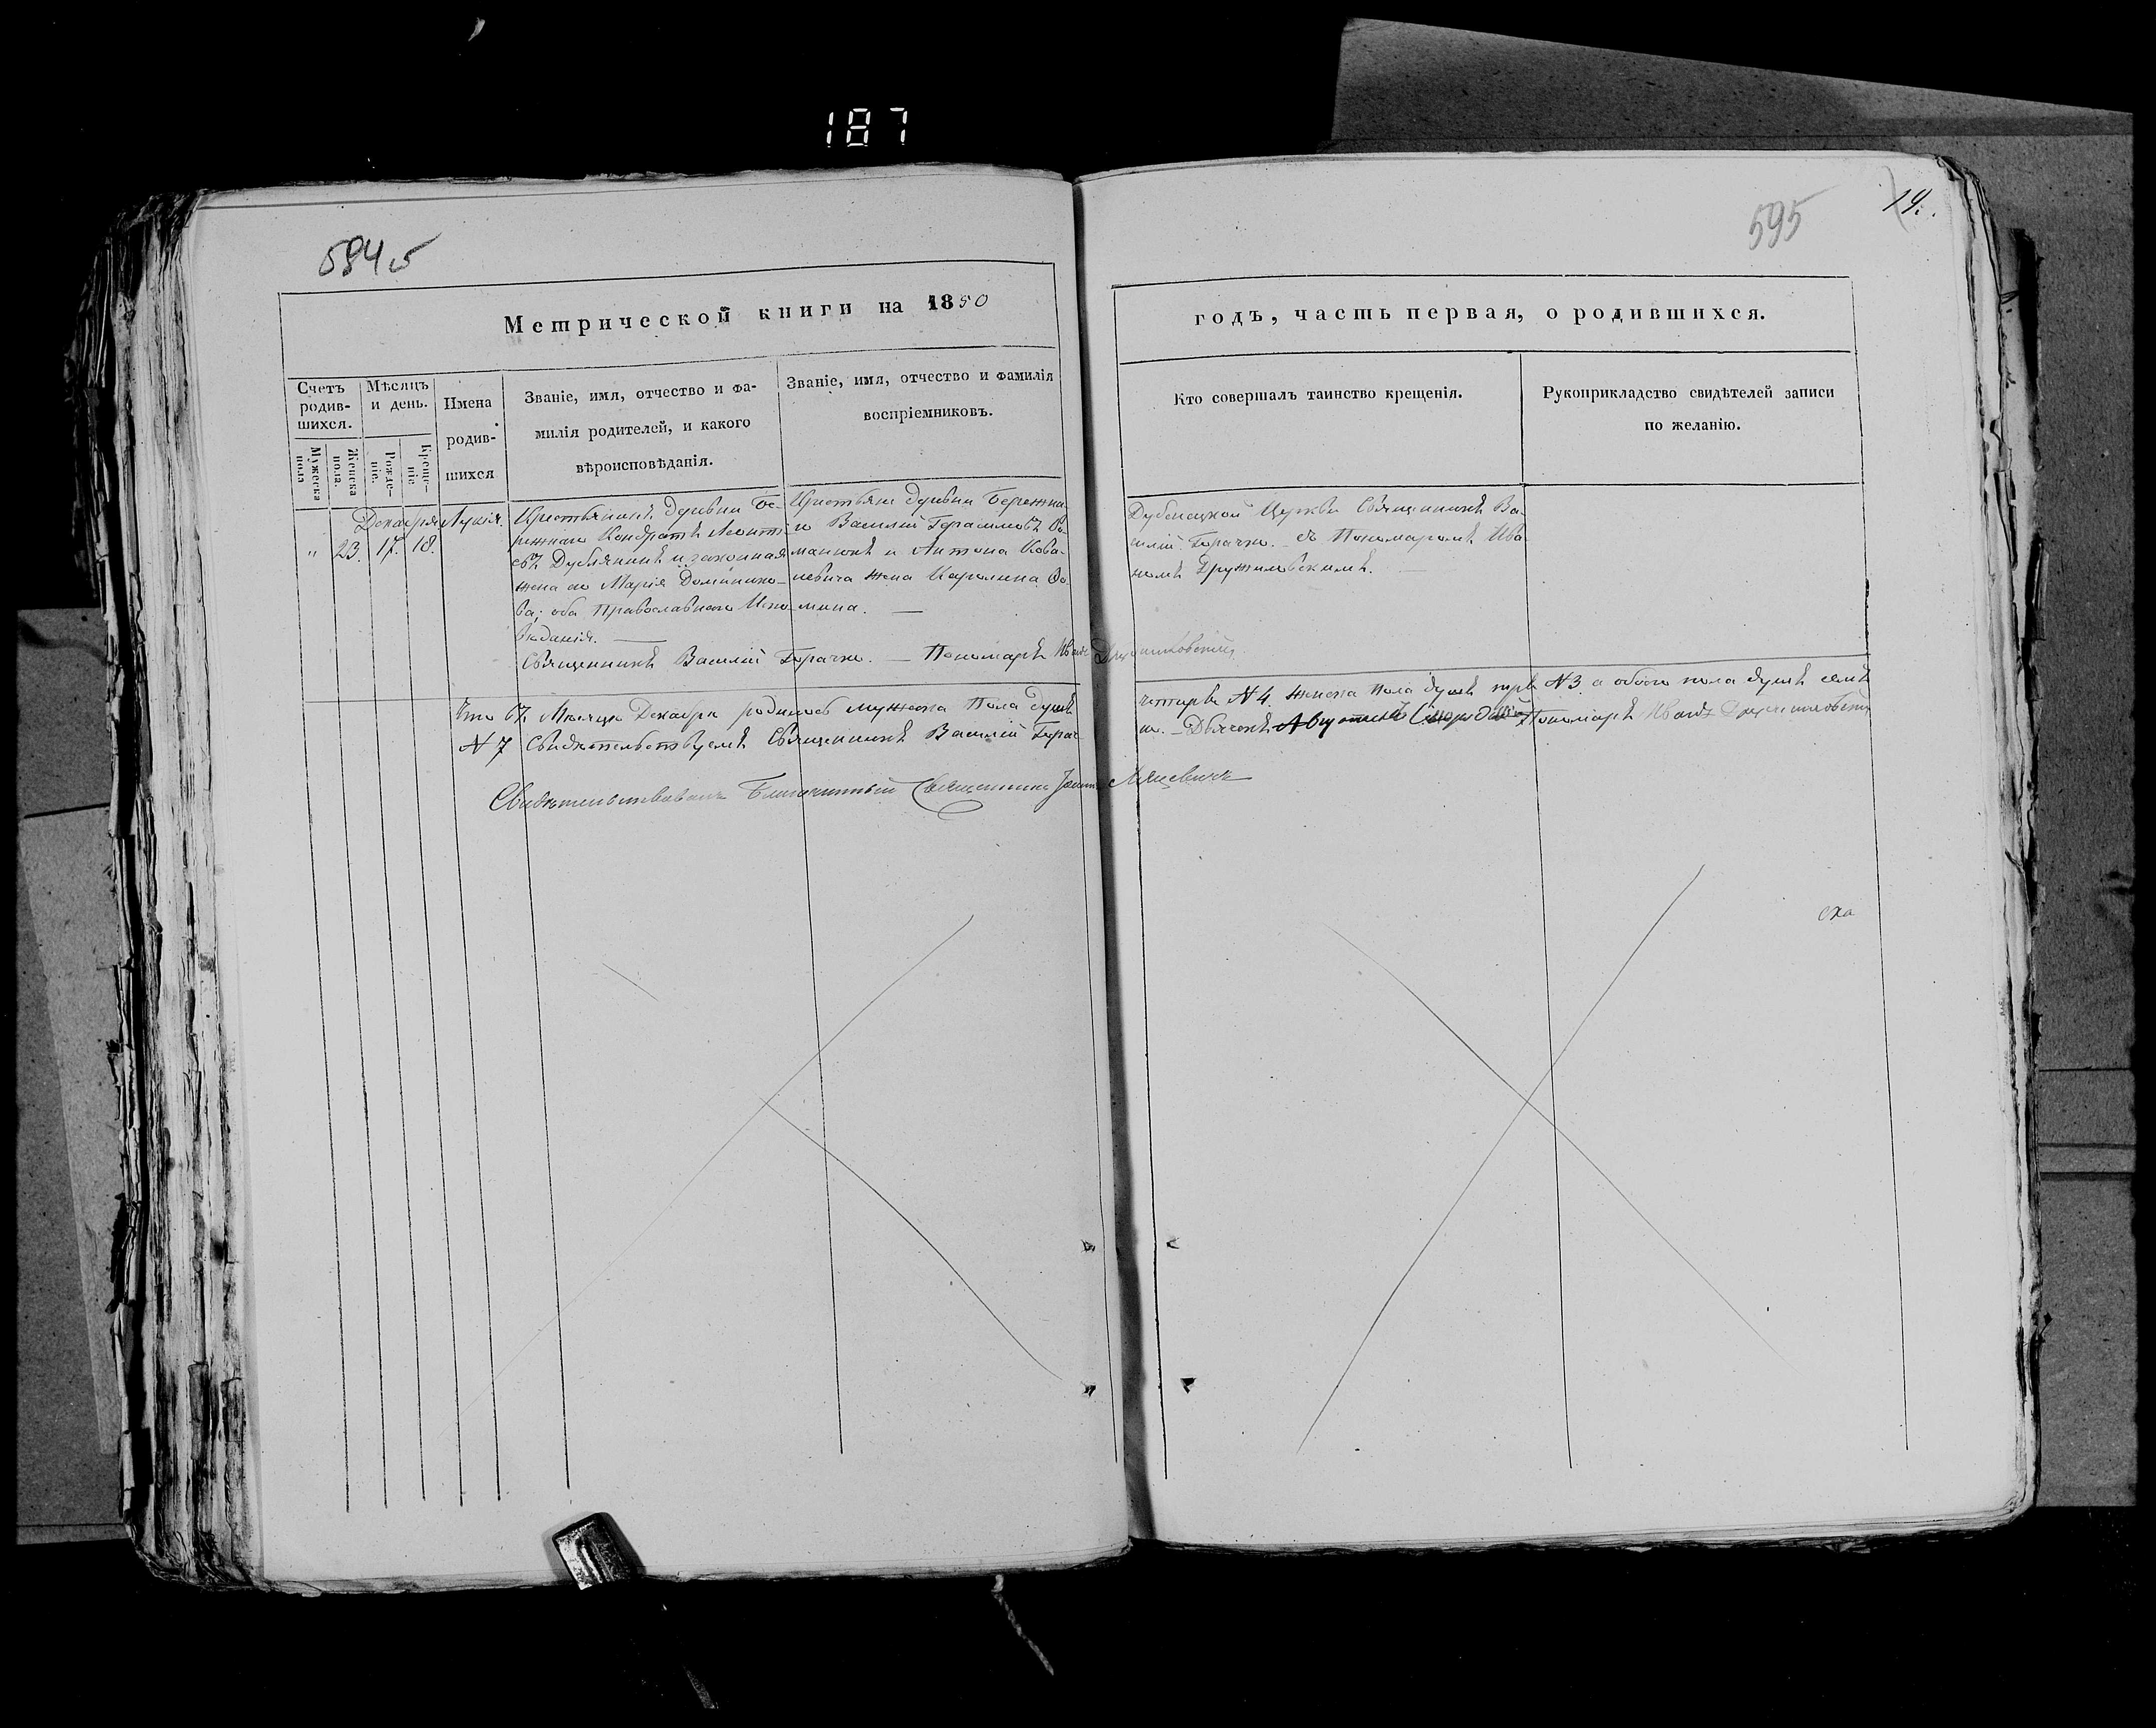 187
584 об
595
19.
Метрической книги на 1850
годъ, часть первая, о родившихся.
Счетъ родив-
шихся.
Мужеска пола
Женска пола.
Мѣсяцъ
и день.
Рожде-
ніе.
Креще-
ніе
Имена
родив-
шихся
Званіе, имя, отчество и фа-
милія родителей, и какого
вѣроисповѣданія.
Званіе, имя, отчество и фамилія
воспріемниковъ.
Кто совершалъ таинство крещенія.
Рукоприкладство свидѣтелей записи
по желанію.
Декабря
„ 23. 17. 18.
Лукія.
Крестьянинъ деревни Бе-
режнаго Кондратъ Леонть-
евъ Дублянинъ и законная
жена его Марія Доминико-
ва; оба Православнаго Испо-
вѣданія. —
Крестьяне деревни Бережна-
го Василій Герасимовъ Фо-
манюкъ и Антона Кова-
левича жена Каролина Фо-
мина. —
Дубенецкой Церкви Священникъ Ва-
силій Горачко. съ Пономаромъ Ива
номъ Дружиловскимъ. —
Священникъ Василій Горачко. — Пономаръ Иванъ Дружиловскій,
Что въ Месяцѣ Декабрѣ родилось мужеска Пола душъ
четыре N 4. женска пола душъ три N 3. а обоего пола душъ семь
N 7 Свидѣтельствуемъ Священникъ Василій Горач
ко. – Дьячокъ Пономаръ Иванъ Дружиловскій
Свидѣтельствовалъ Благочинный Священникъ